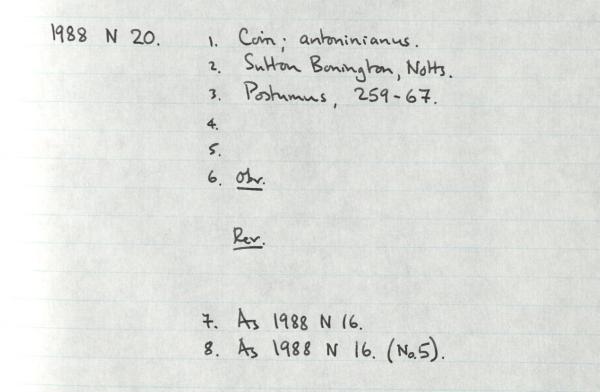 1988 N 20. 1. Coin; antoninianus.
2. Sutton Bonington, Notts.
3. Postumus, 259-67.
4.
5.
6. Obv.
Rev.
7. As 1988 N 16.
8. As 1988 N 16. (No.5).